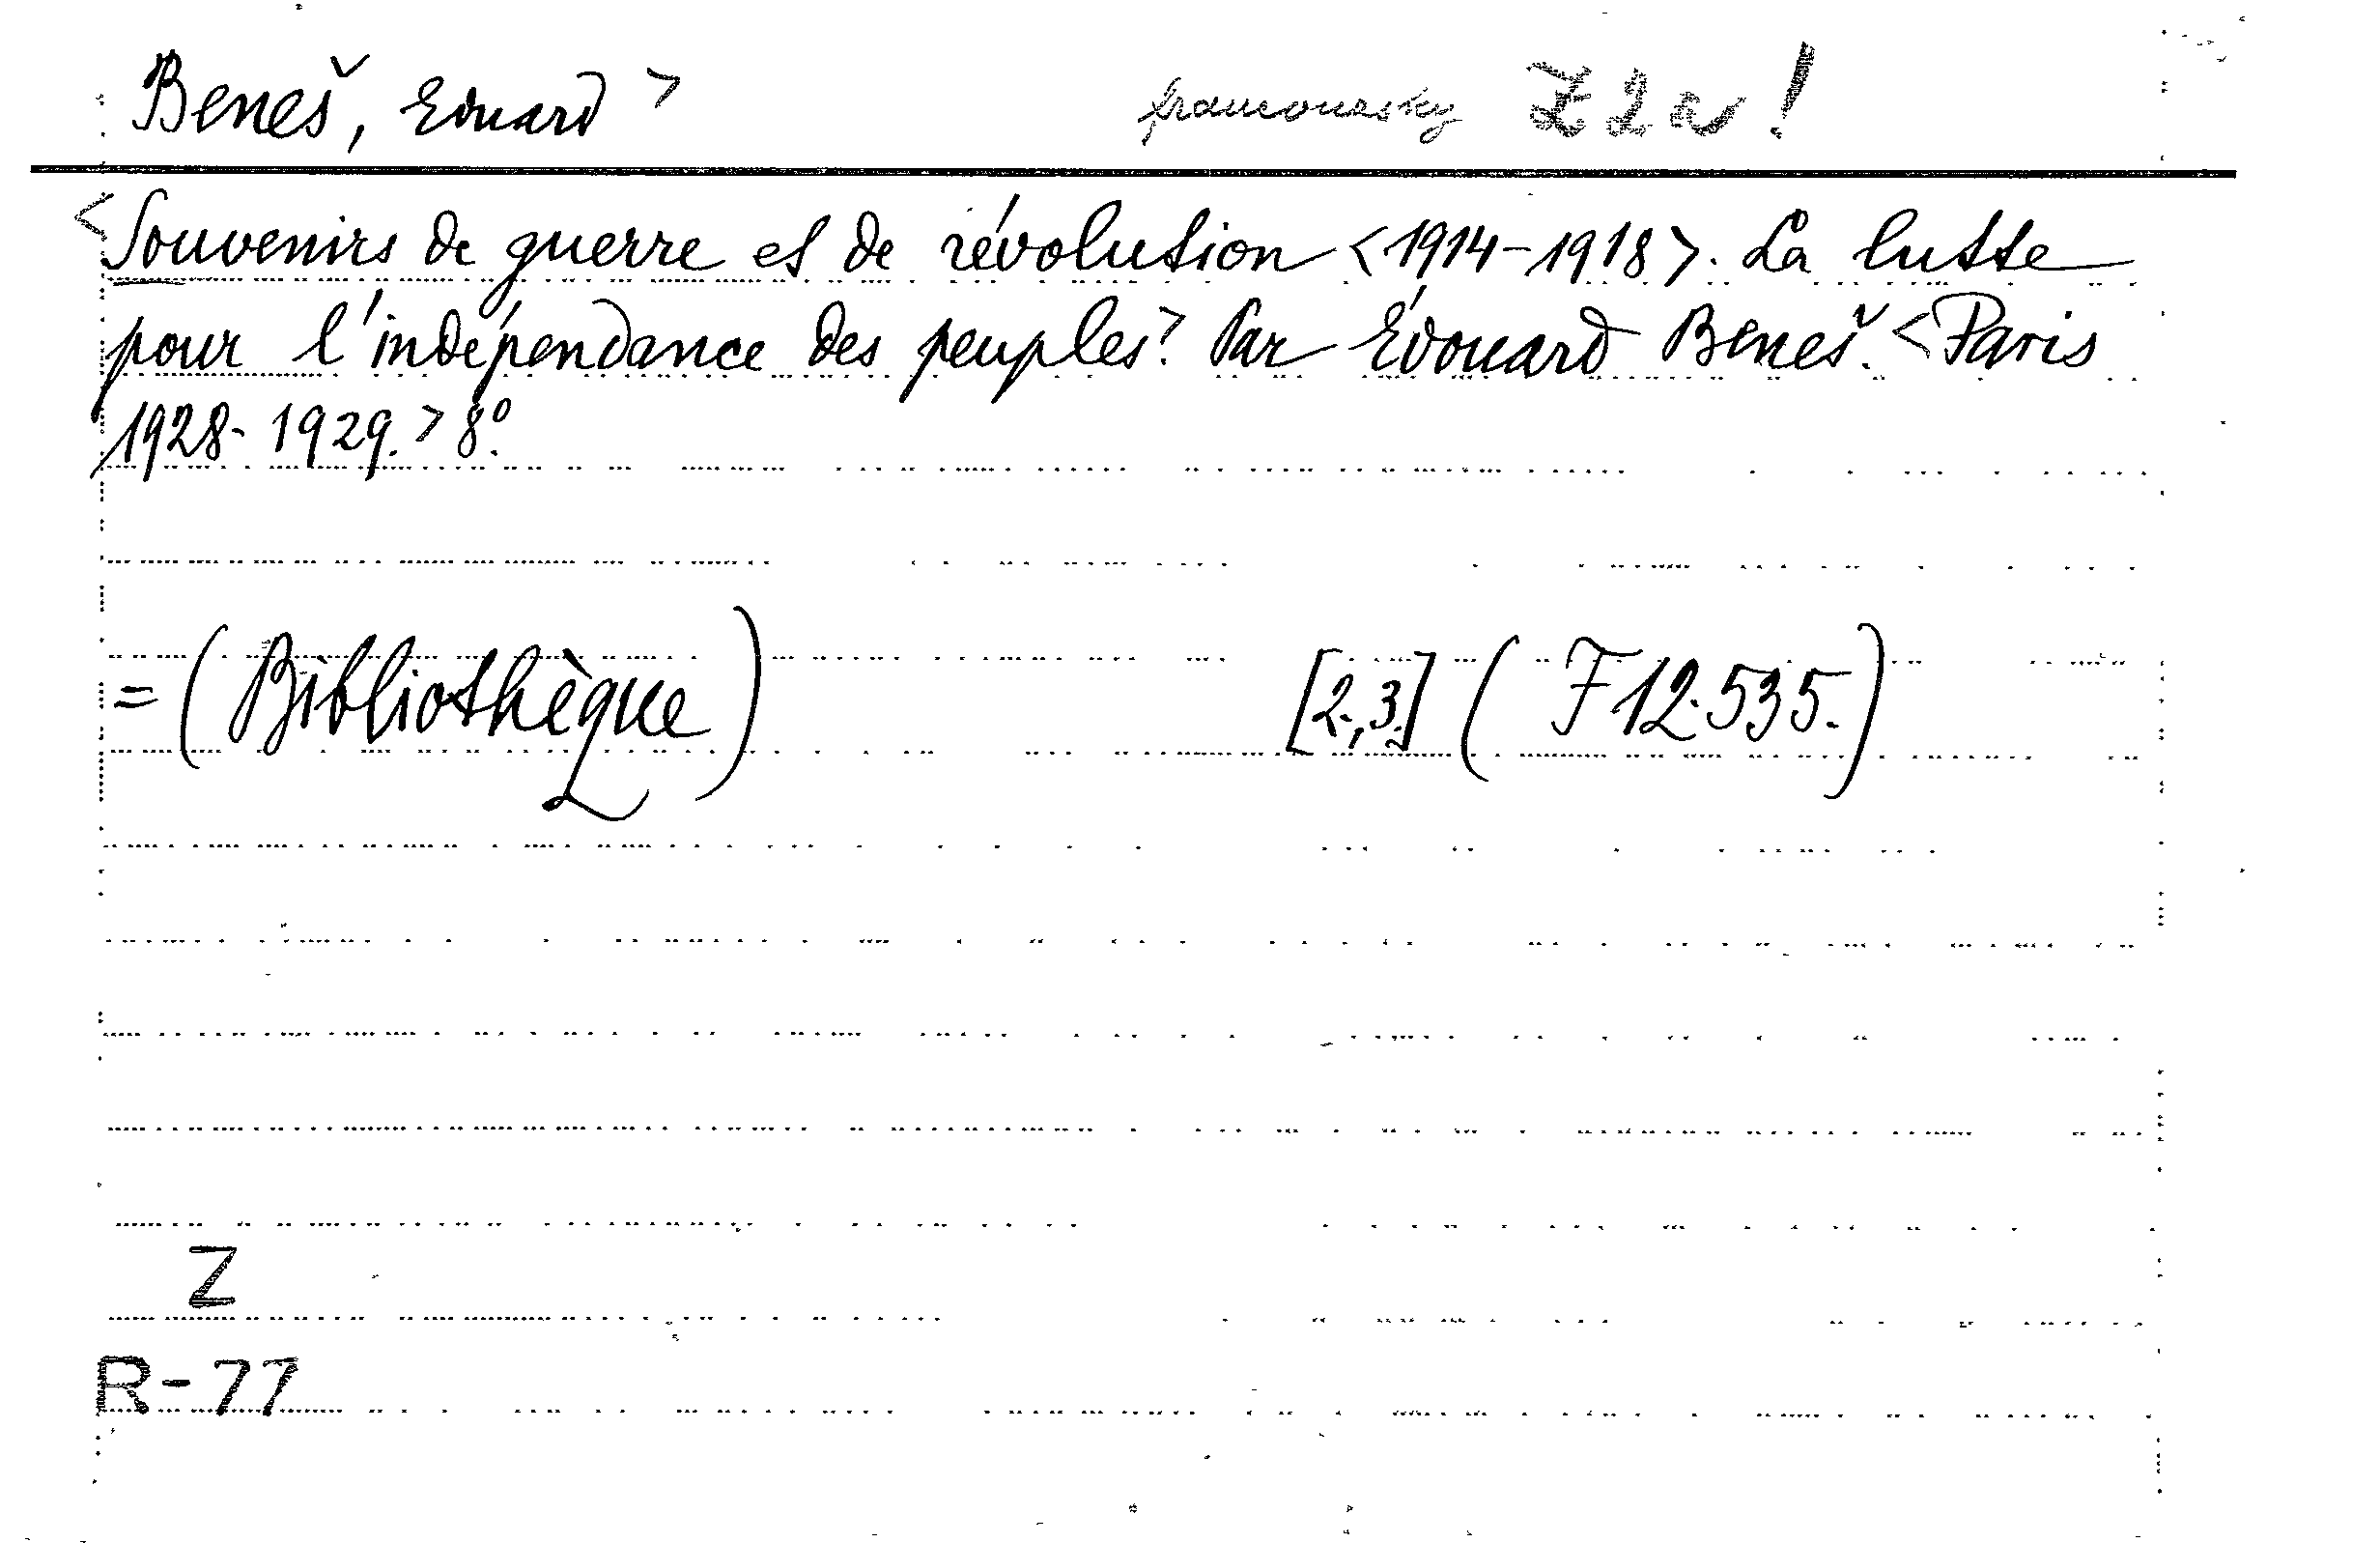 Beneš, Eduard > francouzsky Z 2 a !
<Souvenirs de guerre et de révolution <1914-1918>. La lutte
pour l'indépendance des peuples> Par Édouard Beneš. <Paris
1928-1929.> 8º.
= (Bibliothèque) [2., 3.] ( F 12.535. )
Z
R-77